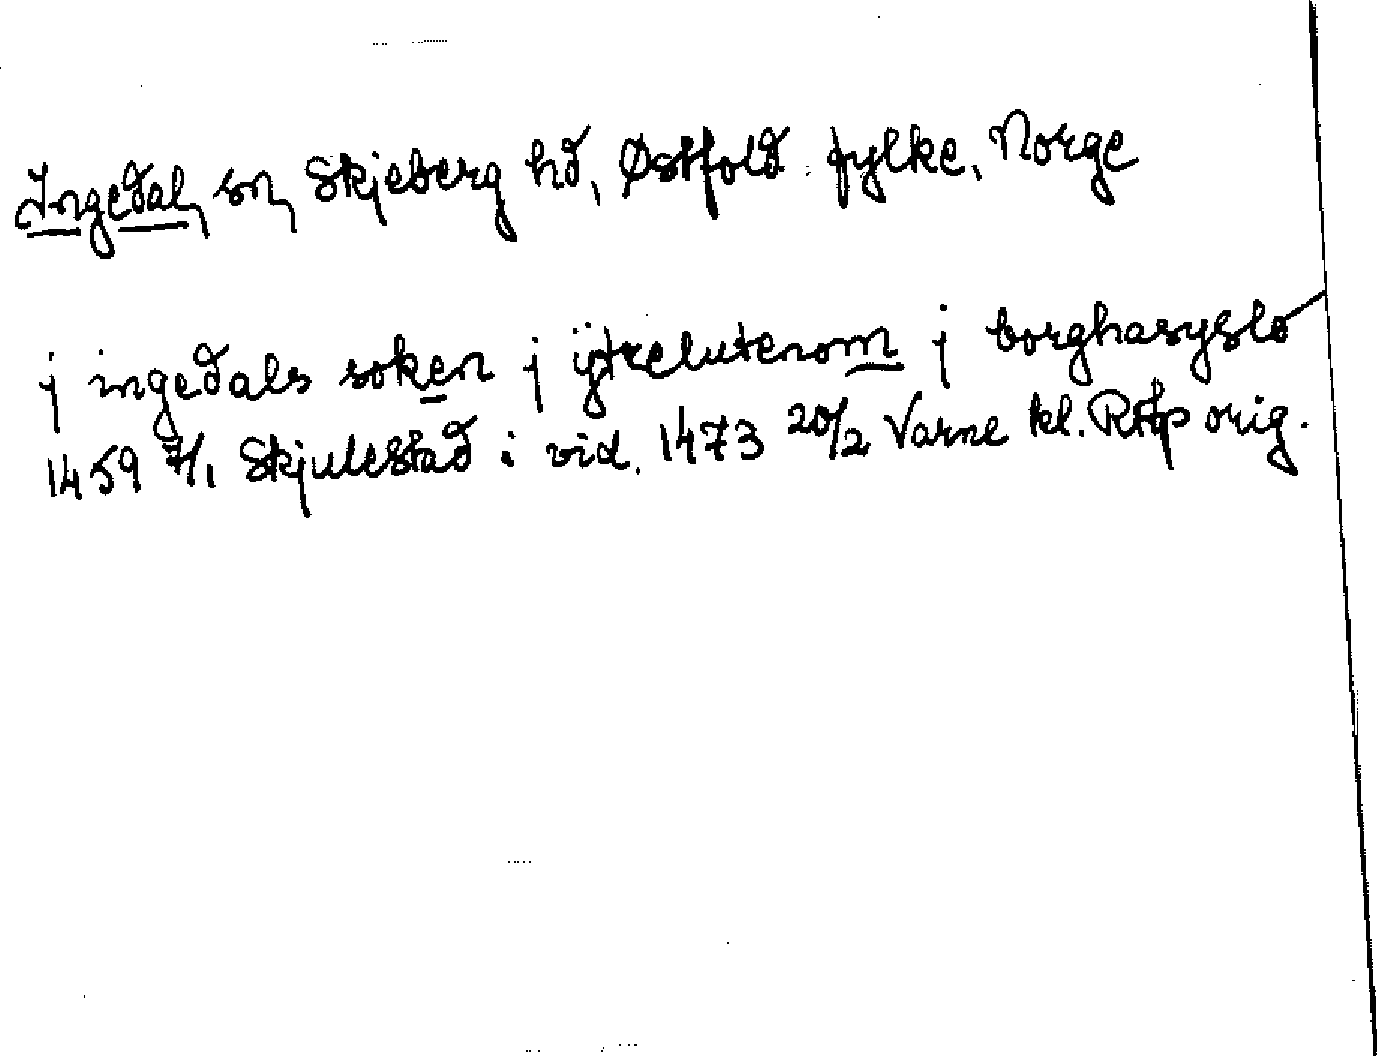 Ingedal, sn, Skjeberg hd, Østfold fylke, Norge
j ingedals soken j ÿtreluterom j borghasyslo
1459 7/1 Skjulestad i vid. 1473 20/2 Varne kl. RAp orig.